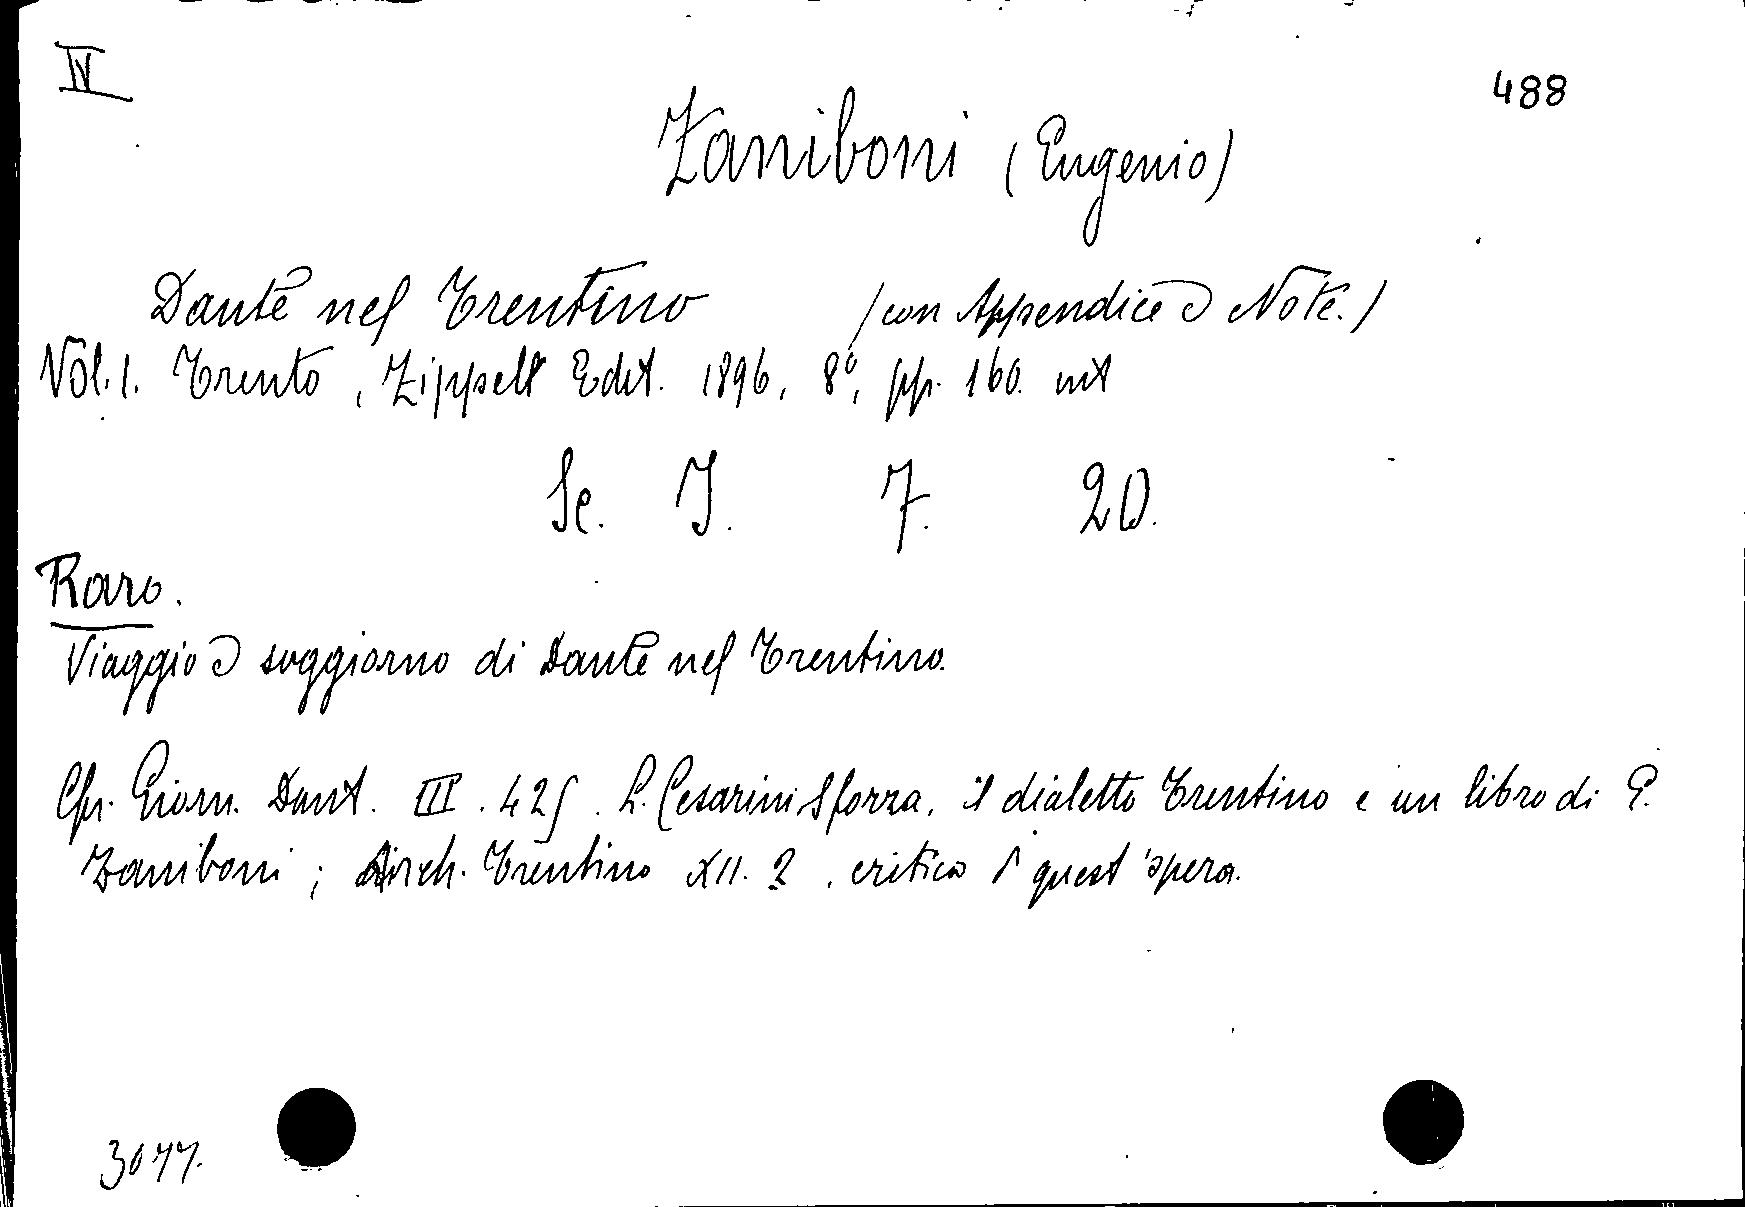 IV
488
Zaniboni (Eugenio)
Dante nel Trentino (con Appendice e Note.)
Vol. 1. Trento, Zippelt Edit. 1896, 8°, pp. 160. int
Se. I. 7. 20.
Raro.
Viaggio e soggiorno di Dante nel Trentino.
Cfr. Giorn. Dant. III. 425. L. Cesarini Sforza, il dialetto Trentino e un libro di E.
Zaniboni; Arch. Trentino XII. 2. critica quest'opera.
3077.